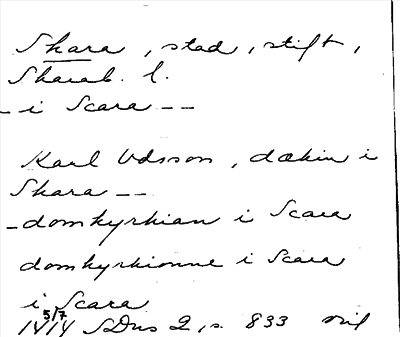 Skara, stad, stift,
Skarab. l.
- i Scara --
Karl Odsson, dækin i
Skara --
- domkyrkian i Scara
domkyrkionne i Scara
i Scara
5/7
1414 SDns 2, s. 833